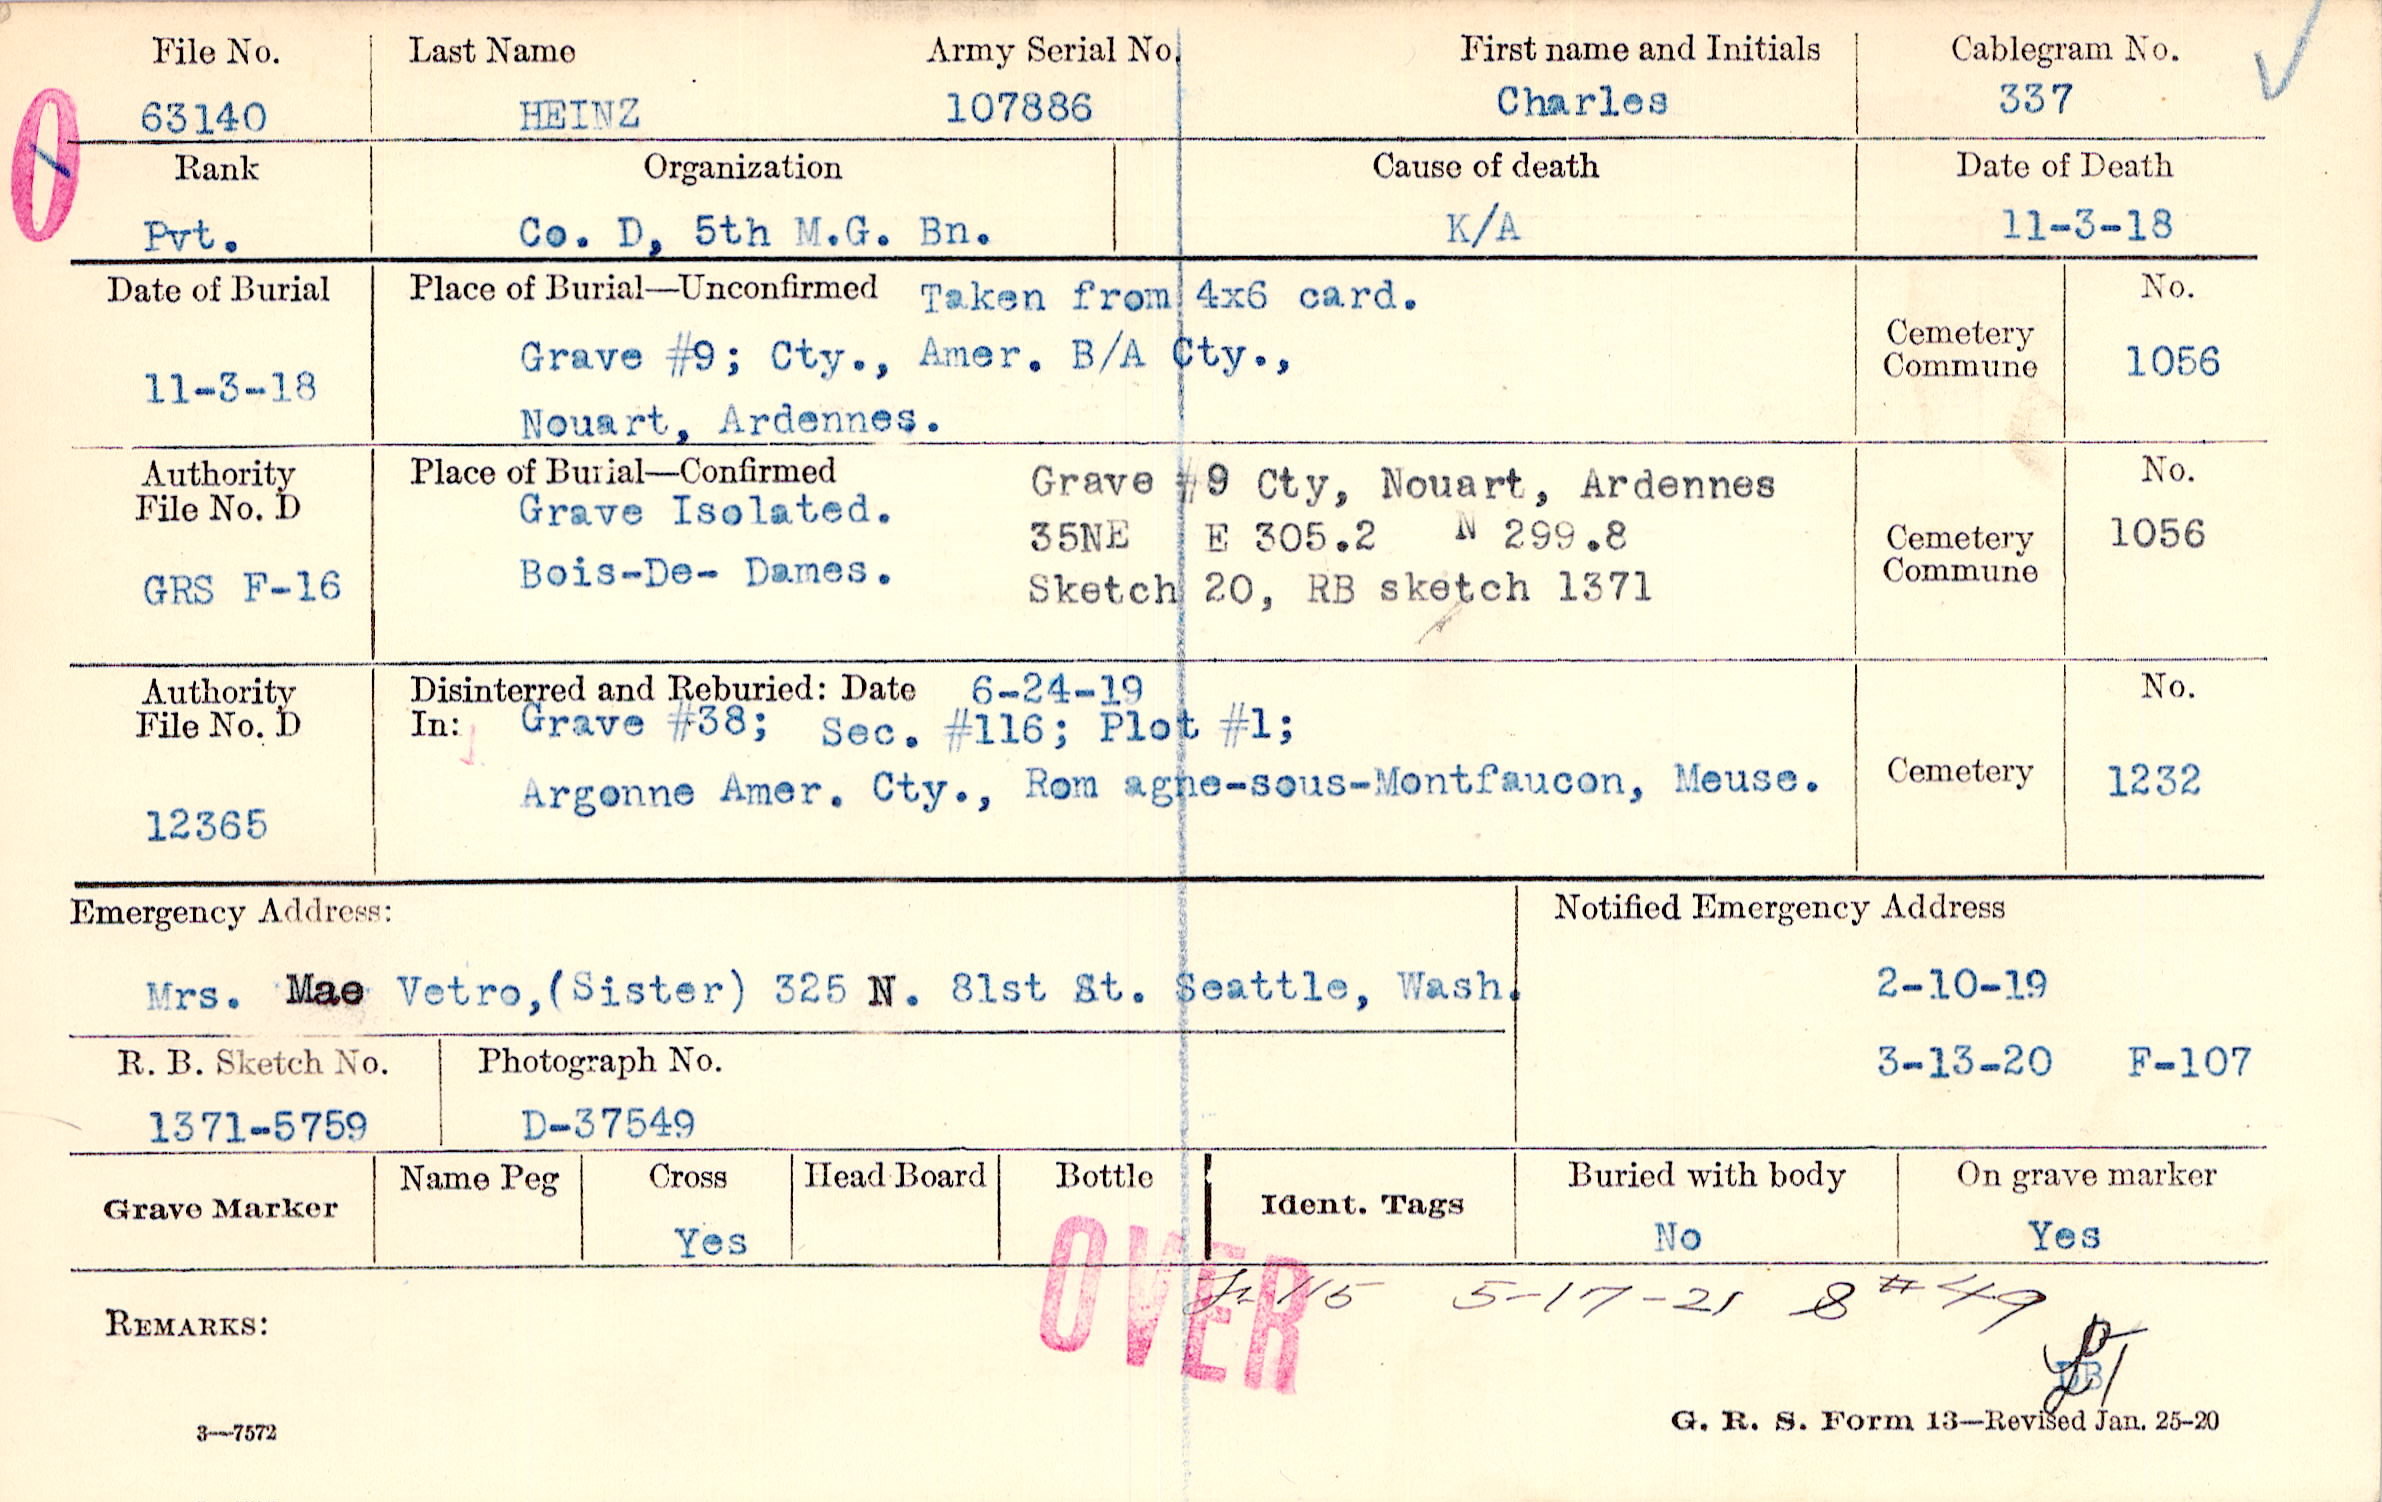 File No. Last Name Army Serial No. First name and Initials Cablegram No.
63140 HEINZ 107886 Charles 337
Rank Organization Cause of death Date of Death
Pvt. Co. D, 5th M.G. Bn. K/A 11-3-18
Date of Burial Place of Burial—Unconfirmed Taken from 4x6 card. No.
Grave #9; Cty., Amer. B/A Cty., Cemetery Commune 1056
11-3-18
Nouart, Ardennes.
Authority File No. D Place of Burial—Confirmed Grave #9 Cty, Nouart, Ardennes No.
Grave Isolated. 35NE E 305.2 N 299.8 Cemetery Commune 1056
GRS F-16 Bois-De- Dames. Sketch 20, RB sketch 1371
Authority File No. D Disinterred and Reburied: Date 6-24-19 No.
In: Grave #38; Sec. #116; Plot #1;
Argonne Amer. Cty., Rom agne-sous-Montfaucon, Meuse. Cemetery 1232
12365
Emergency Address: Notified Emergency Address
Mrs. Mae Vetro,(Sister) 325 N. 81st St. Seattle, Wash. 2-10-19
R. B. Sketch No. Photograph No. 3-13-20 F-107
1371-5759 D-37549
Grave Marker Name Peg Cross Head Board Bottle Ident. Tags Buried with body On grave marker
Yes No Yes
OVER
115 5-17-21 8 #49
REMARKS:
3—7572 G. R. S. Form 13—Revised Jan. 25-20